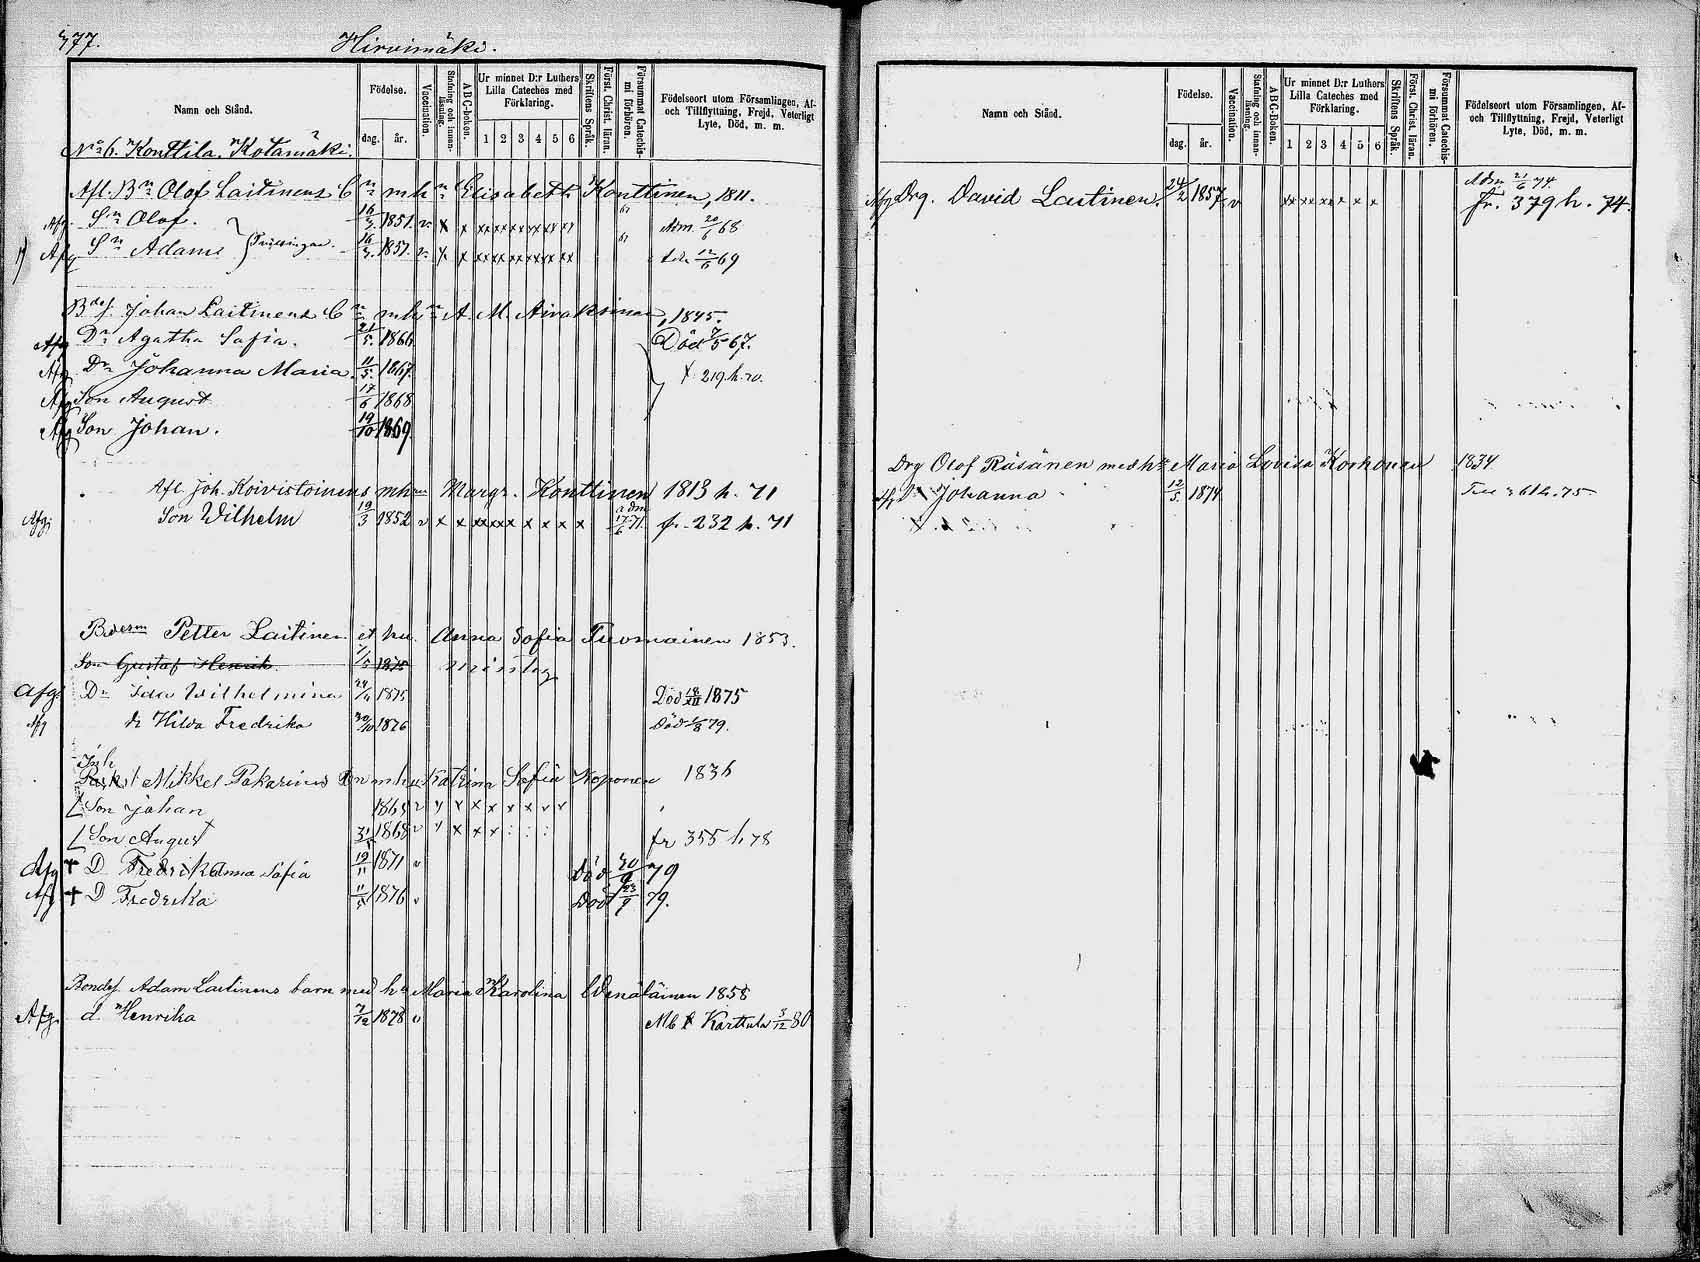 377.
Hirvimäki.
Namn och Stånd.
Födelse.
dag. år.
Vaccination.
Stafning och innanläsning.
ABC-boken.
Ur minnet D:r Luthers Lilla Cateches med Förklaring.
1 2 3 4 5 6
Skriftens Språk.
Först. Christ. läran.
Försummat Catechismi förhören.
Födelseort utom Församlingen, Af- och Tillflyttning, Frejd, Veterligt Lyte, Död, m. m.
No 6. Konttila. Kotamäki.
Afl. Bn Olof Laitinens mhn Elisabeth Konttinen, 1811.
Afg. Sn Olof. 16/3. 1851. v. x x xx xx xx xx xx xx 67 Adm. 20/6 68
Afg Sn Adam 16/3. 1851. v. x x xx xx xx xx xx xx 67 12/6 69
Johan Laitinens mhn A. M. Airaksinen, 1845.
Afg Dr Agatha Sofia. 21/5. 1866 Död 7/5 67.
Afg Dr Johanna Maria. 11/5. 1867. 219. h. 70.
Afg Son August 17/6 1868
Afg Son Johan. 19/10 1869.
Afl. Joh. Koivistoinens mhn Margr. Konttinen 1813 h. 71
Afg. Son Wilhelm 19/3 1852 v x x xx xx x x x x x adm 17/6 71. fr. 232 h. 71
Petter Laitinen et hu. Anna Sofia Tuomainen 1853.
Son Gustaf Henrik. 1875 misstag
Afg. Dr Ida Wilhelmina 24/4 1875 Död 18/XII 1875
Afg dr Hilda Fredrika 30/10 1876 Död 79.
Inh
Mikkel Pakarinens mhu Katrina Sofia Koponen 1836
Son Johan 1865 v
Son August 31/5 1868 v fr 355 h 78
Afg † D Anna Sofia 19/11 1871 v Död 30/9 79
Afg † D Fredrika 11/5 1876 v Död 23/9 79.
Adam Laitinens barn med hu Maria Karolina Wenäläinen 1858
Afg. d. Henrika 7/12 1878 v Mb Karttula 3/12 80
Namn och Stånd.
Födelse.
dag. år.
Vaccination.
Stafning och innanläsning.
ABC-Boken.
Ur minnet D:r Luthers Lilla Cateches med Förklaring.
1 2 3 4 5 6
Skriftens Språk.
Först. Christ. läran.
Försummat Catechismi förhören.
Födelseort utom Församlingen, Af- och Tillflyttning, Frejd, Veterligt Lyte, Död, m. m.
Adm. 21/6 74.
Afg Drg. David Laitinen. 24/2 1857 v xx xx xx x x x fr. 379 h. 74.
Drg Olof Räsänen med hu Maria Lovisa Korhonen 1834
Afg Dr Johanna 12/5. 1874